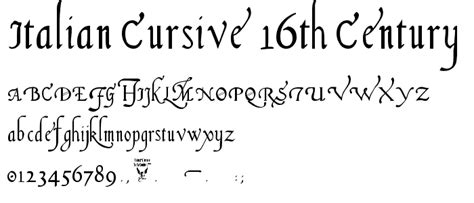 Italian Cursive 16th Century
ABCDEFGHIJKLMNOPQRSTUVWXYZ
abcdefghijklmnopqrstuvwxyz
0123456789., . :;